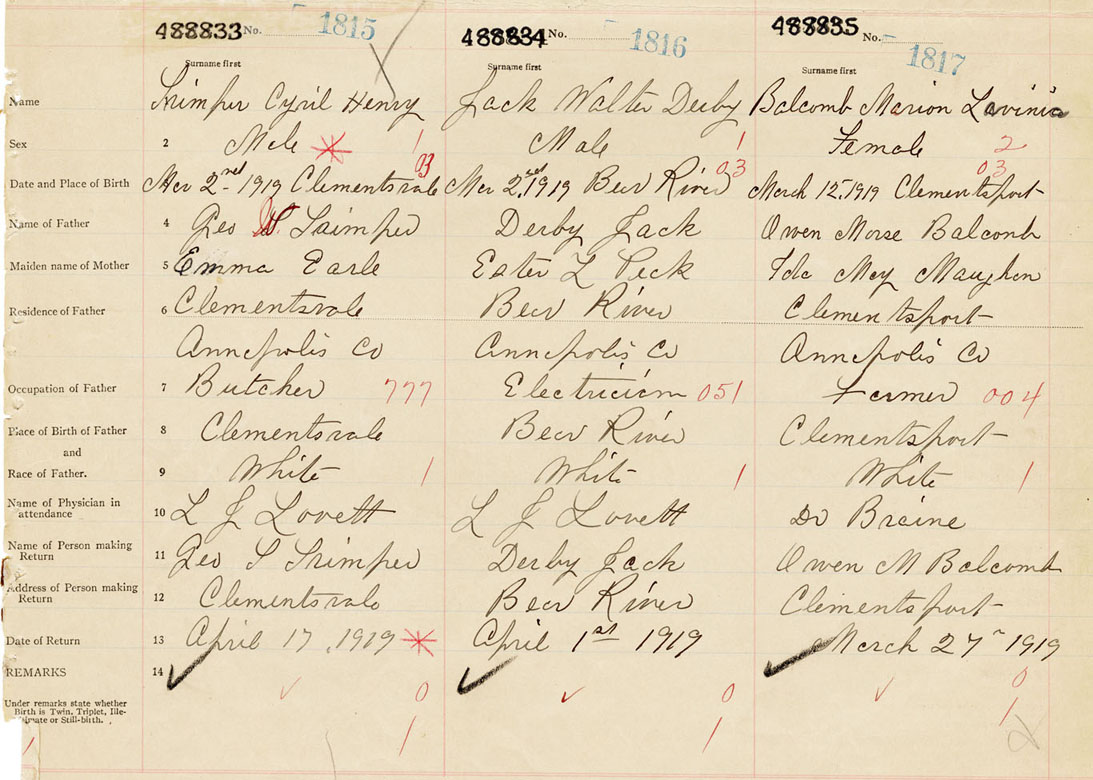 488833 No. 1815 488834 No. 1816 488835 No. 1817
Surname first Surname first Surname first
Name Trimper Cyril Henry Jack Walter Derby Balcomb Marion Lavinia
Sex 2 Male * 1 Male 1 Female 2
03 03 03
Date and Place of Birth Mar 2nd 1919 Clementsvale Mar 2nd, 1919 Bear River March 12, 1919 Clementsport
Name of Father 4 Geo Trimper Derby Jack Owen Morse Balcomb
Maiden name of Mother 5 Emma Earle Ester L Peck Ida May Maughan
Residence of Father 6 Clementsvale Bear River Clementsport
Annapolis Co Annapolis Co Annapolis Co
Occupation of Father 7 Butcher 777 Electrician 051 Farmer 004
Place of Birth of Father 8 Clementsvale Bear River Clementsport
and
Race of Father. 9 White 1 White 1 White 1
Name of Physician in
attendance 10 L J Lovett L J Lovett Dr Braine
Name of Person making
Return 11 Geo S Trimper Derby Jack Owen M Balcomb
Address of Person making
Return 12 Clementsvale Bear River Clementsport
Date of Return 13 April 17, 1919 * April 1st 1919 March 27 1919
REMARKS 14
Under remarks state whether
Birth is Twin, Triplet, Ille-
gitimate or Still-birth. 0 0 0
1 1 1